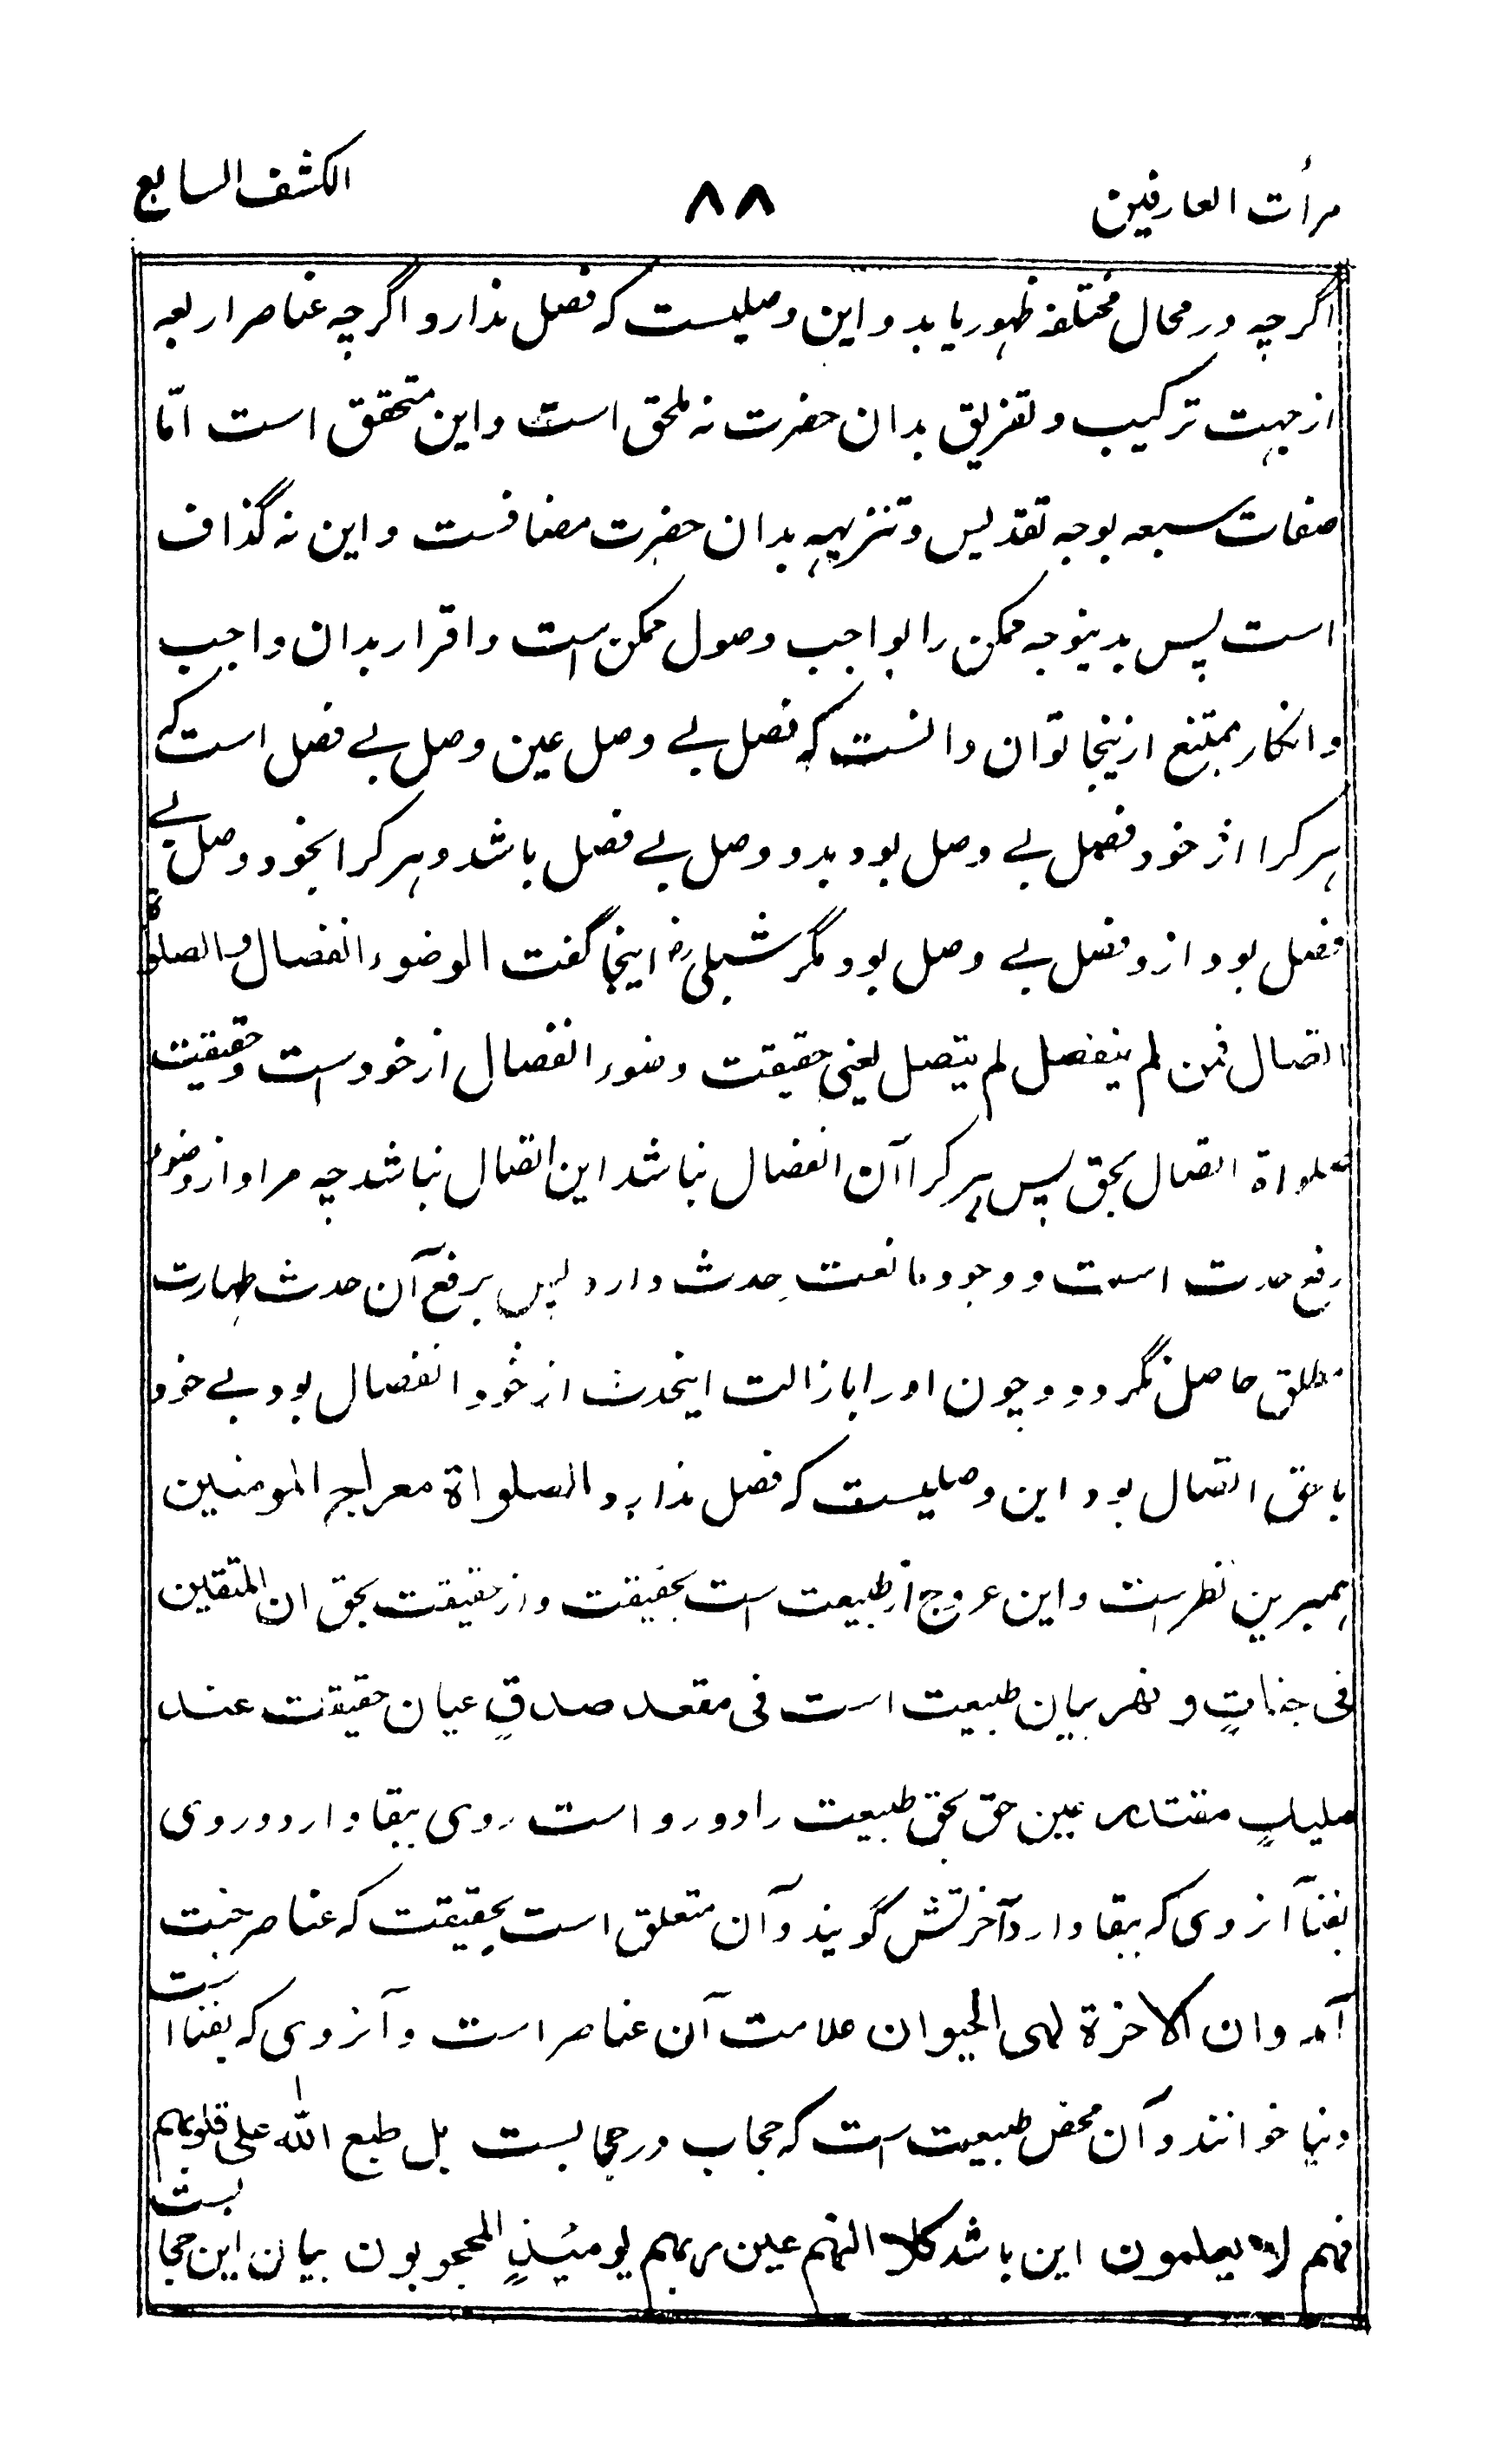 مرأت العارفین ۸۸ الکشف السابع
اگرچه در محال مختلفه ظهور یابد و این وصلیست که فصل ندارد و اگرچه عناصر اربعه
از جهت ترکیب و تفریق بدان حضرت نه ملحق است و این متحقق است امّا
صفات سبعه بوجه تقدیس و تنزیهه بدان حضرت مضافست و این نه گذاف
است پس بدینوجه ممکن را بواجب وصول ممکن است و اقرار بدان واجب
و انکار ممتنع ازینجا توان دانست که فصل بے وصل عین وصل بے فصل است که
هر کرا از خود فصل بے وصل بود بدو وصل بے فصل باشد و هر کرا بخود وصل بے
فصل بود ازو فصل بے وصل بود مگر شبلی رض اینجا گفت الوضوء انفصال والصلوة
اتصال فمن لم ینفصل لم یتصل یعنی حقیقت وضوء انفصال از خود است و حقیقت
صلواة اتصال بحق پس هر کرا آن انفصال نباشد این اتصال نباشد چه مراد از وضوء
رفع حدث است و وجود مانعت حدث دارد پس برفع آن حدث طهارت
مطلق حاصل نگردد و چون او را بازالت اینحدث از خود انفصال بود بے خود
باحق اتصال بود این وصلیست که فصل ندارد والصلواة معراج المومنین
همبرین نظر است و این عروج از طبیعت است بحقیقت و از حقیقت بحق ان المتقین
فی جناتٍ و نهر بیان طبیعت است فی مقعد صدقٍ عیان حقیقت عند
ملیكٍ مقتدر عین حق بحق طبیعت را دو رو است روی ببقا دارد و روی
بفنا آنروی که ببقا دارد آخرتش گویند و آن متعلق است بحقیقت که عناصر جنت
آمد وان الاخرة لهی الحیوان علامت آن عناصر است و آنروی که بفنا است
دنیا خوانند و آن محض طبیعت است که حجاب در حجابست بل طبع الله علی قلوبهم
فهم لا یعلمون این باشد کلا انهم عین ربهم یومئذٍ المحجوبون بیان این حجابست